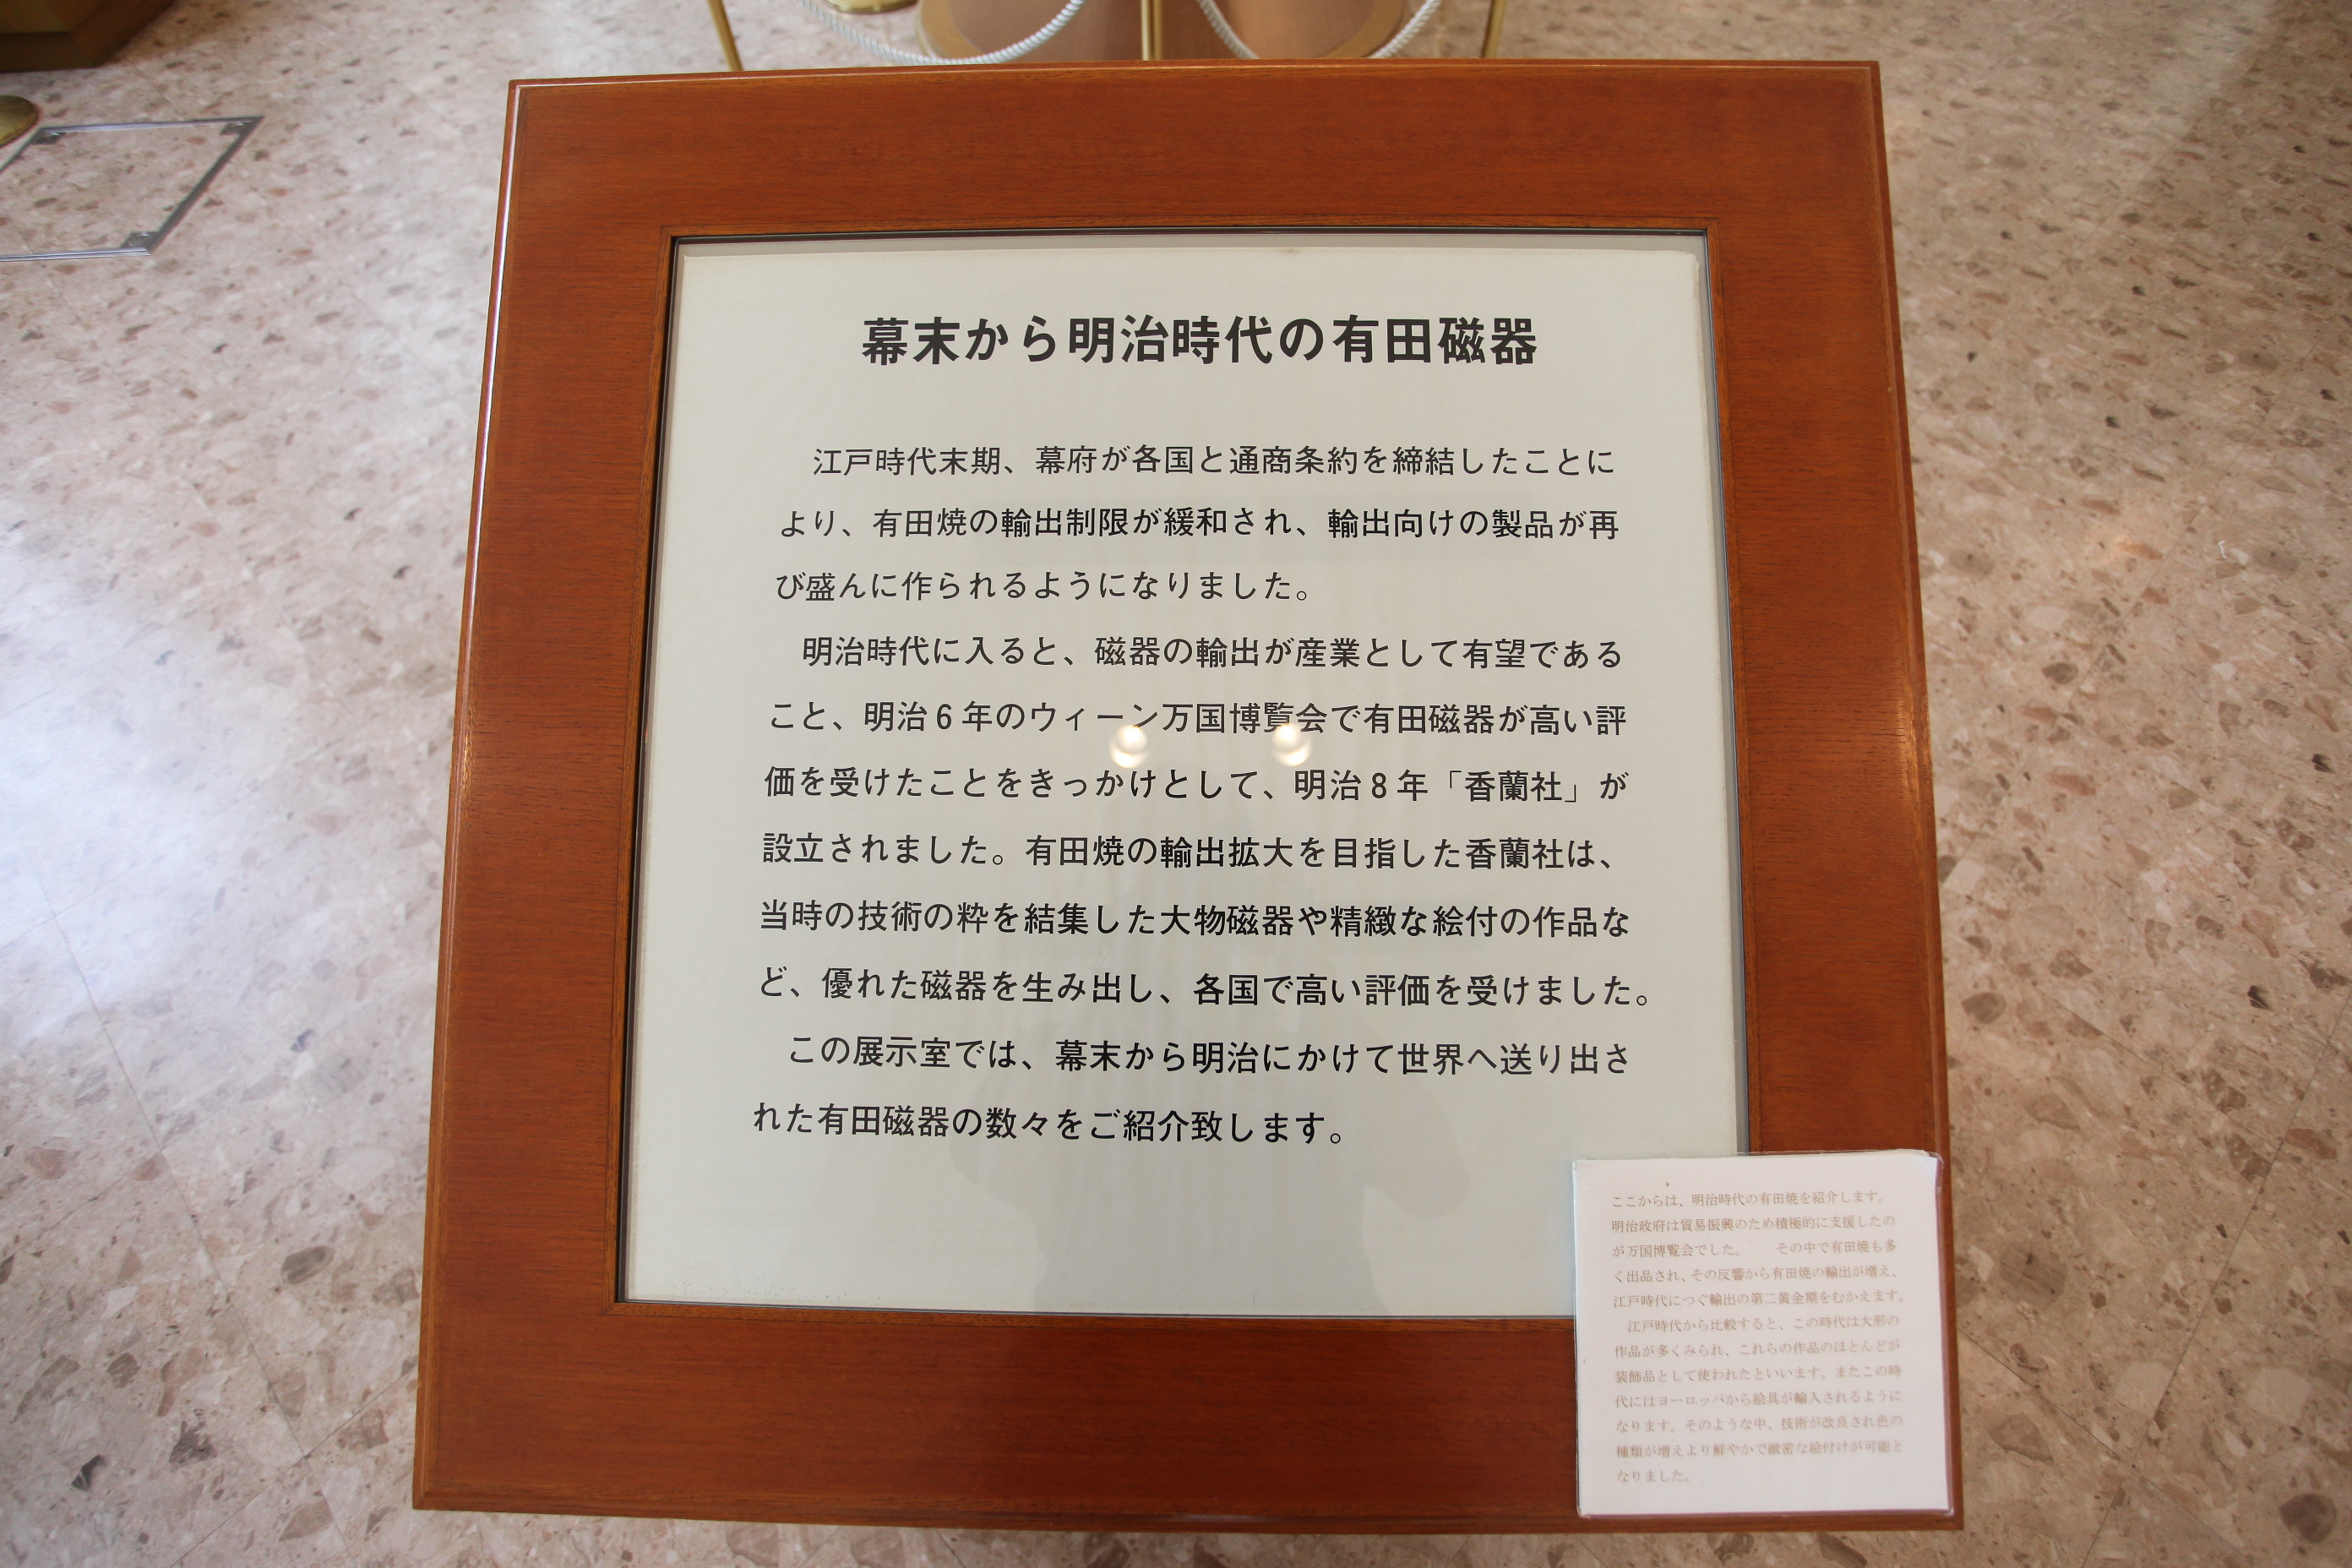 幕末から明治時代の有田磁器
江戸時代末期、幕府が各国と通商条約を締結したことに
より、有田焼の輸出制限が緩和され、輸出向けの製品が再
び盛んに作られるようになりました。
明治時代に入ると、磁器の輸出が産業として有望である
こと、明治6年のウィーン万国博覧会で有田磁器が高い評
価を受けたことをきっかけとして、明治8年「香蘭社」が
設立されました。有田焼の輸出拡大を目指した香蘭社は、
当時の技術の粋を結集した大物磁器や精緻な絵付の作品な
ど、優れた磁器を生み出し、各国で高い評価を受けました。
この展示室では、幕末から明治にかけて世界へ送り出さ
れた有田磁器の数々をご紹介致します。
ここからは、明治時代の有田焼を紹介します。
明治政府は貿易振興のため積極的に支援したの
が万国博覧会でした。　その中で有田焼も多
く出品され、その反響から有田焼の輸出が増え、
江戸時代につぐ輸出の第二黄金期をむかえます。
江戸時代から比較すると、この時代は大形の
作品が多くみられ、これらの作品のほとんどが
装飾品として使われたといいます。またこの時
代にはヨーロッパから絵具が輸入されるように
なります。そのような中、技術が改良され色の
種類が増えより鮮やかで緻密な絵付けが可能と
なりました。